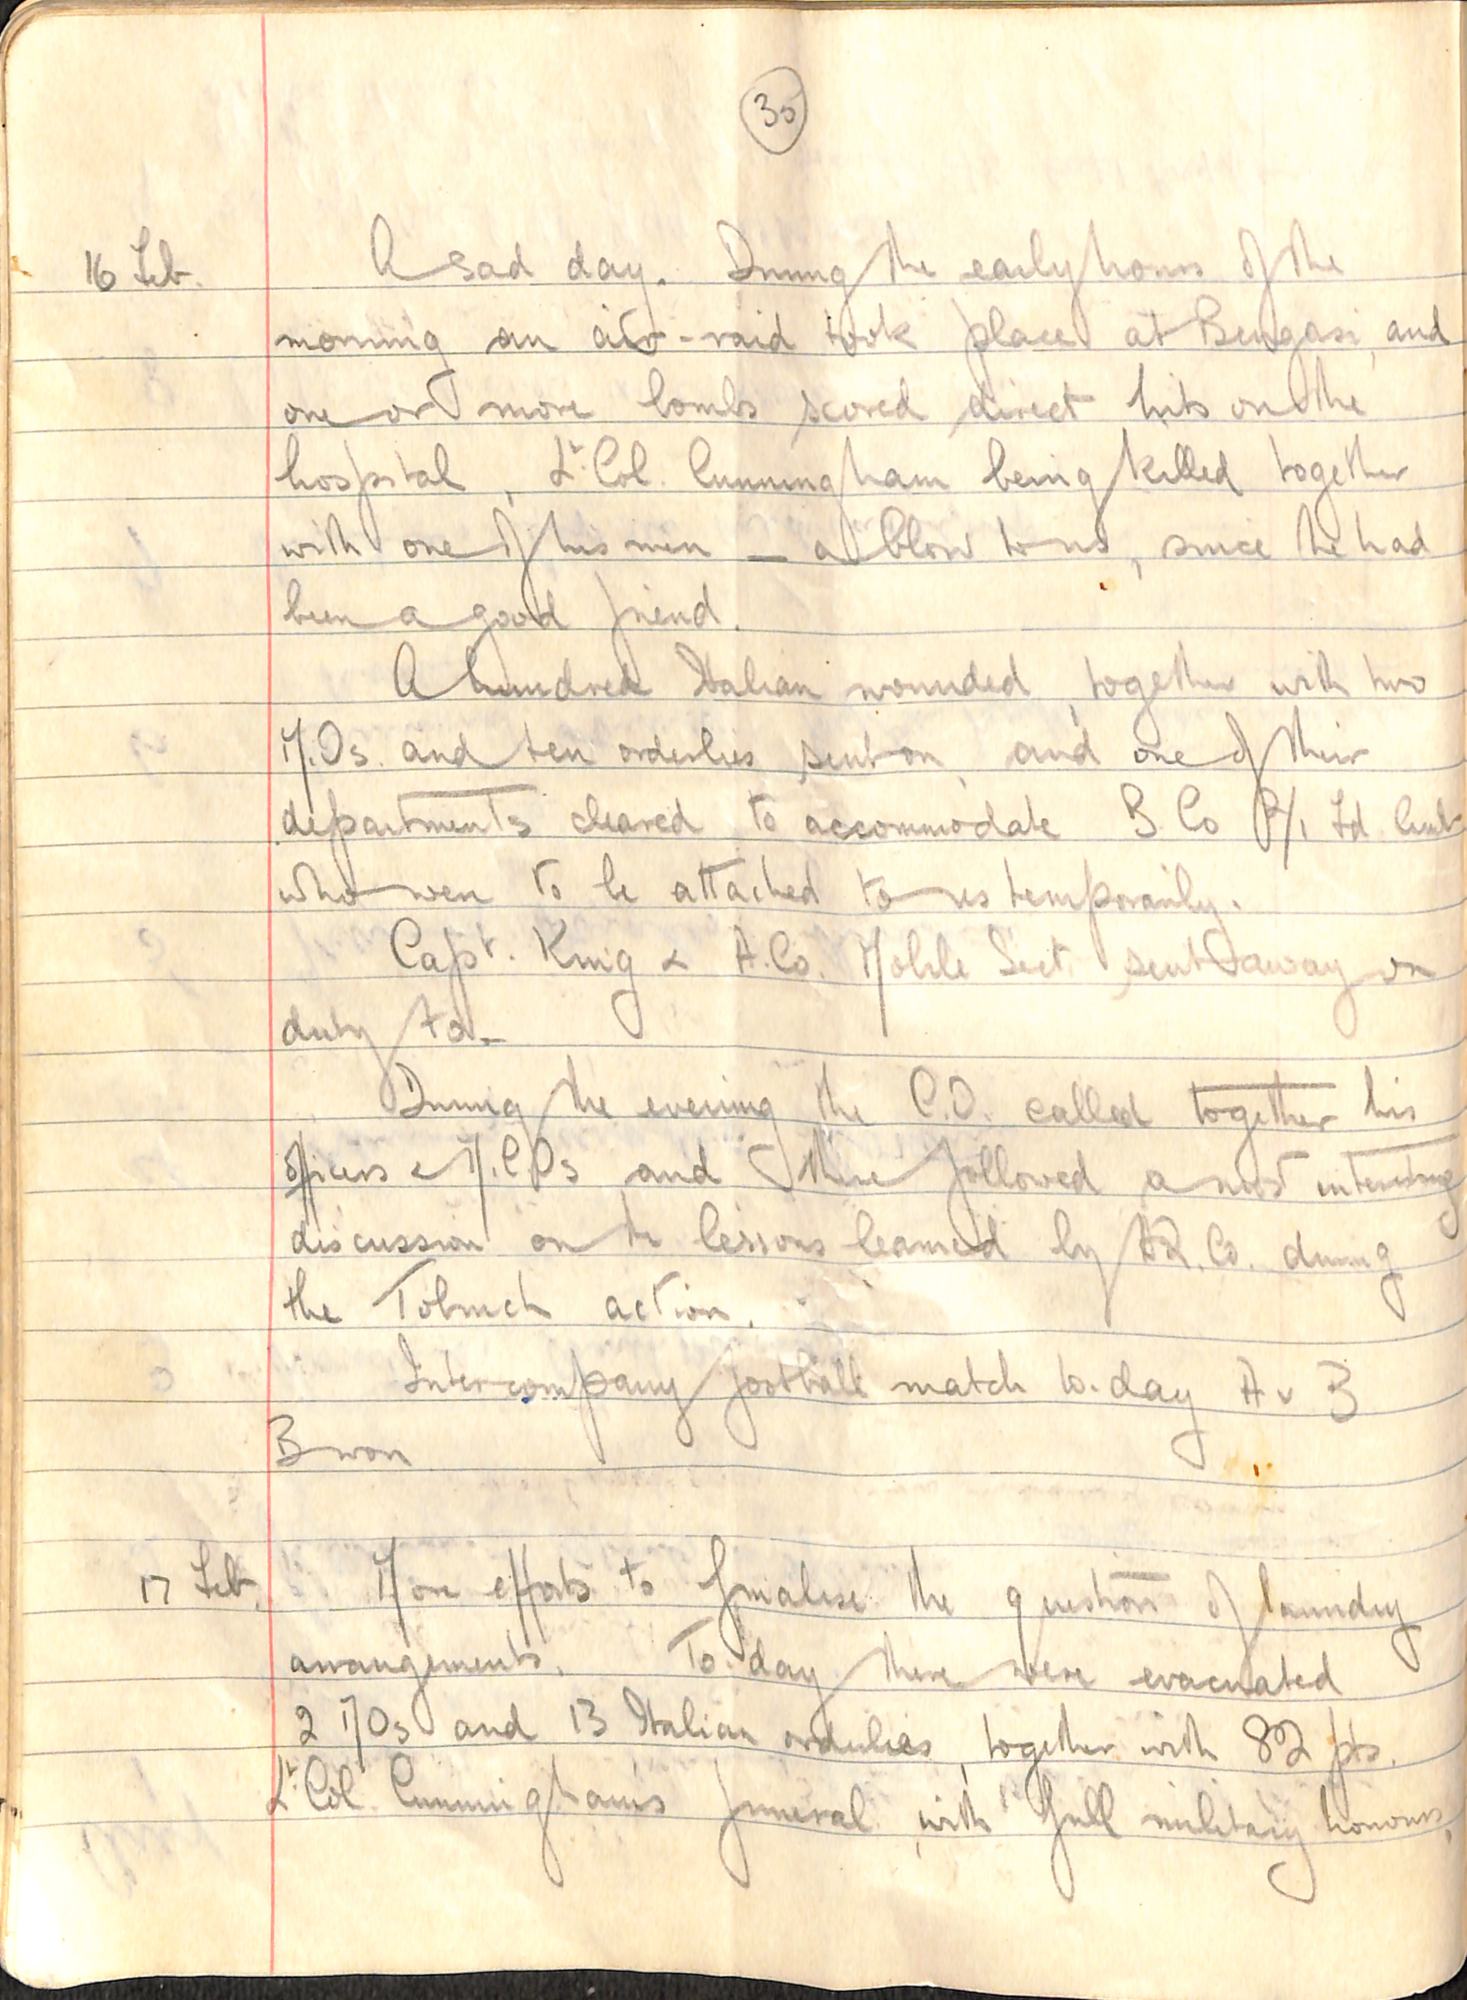 35
16 Feb. A sad day. During the early hours of the
morning an air-raid took place at Bengasi, and
one or more bombs scored direct hits on the
hospital, Lt. Col. Cunningham being killed together
with one of his men — a blow to us, since he had
been a good friend.
A hundred Italian wounded, together with two
M.Os. and ten orderlies sent on, and one of their
departments cleared to accommodate B Co 2/1 Fd.
who were to be attached to us temporarily.
Capt. King & A.Co. Mobile Sect. sent away on
duty to-
During the evening the C.O. called together his
officers & N.C.Os and there followed a most interesting
discussion on the lessons learned by Co. during
the Tobruch action.
Inter-company football match to-day A v B
B won
17 Feb. More efforts to finalise the question of laundry
arrangements. To-day there were evacuated
2 MOs and 13 Italian orderlies, together with 82 pts.
Lt. Col. Cunningham's funeral, with full military honours,